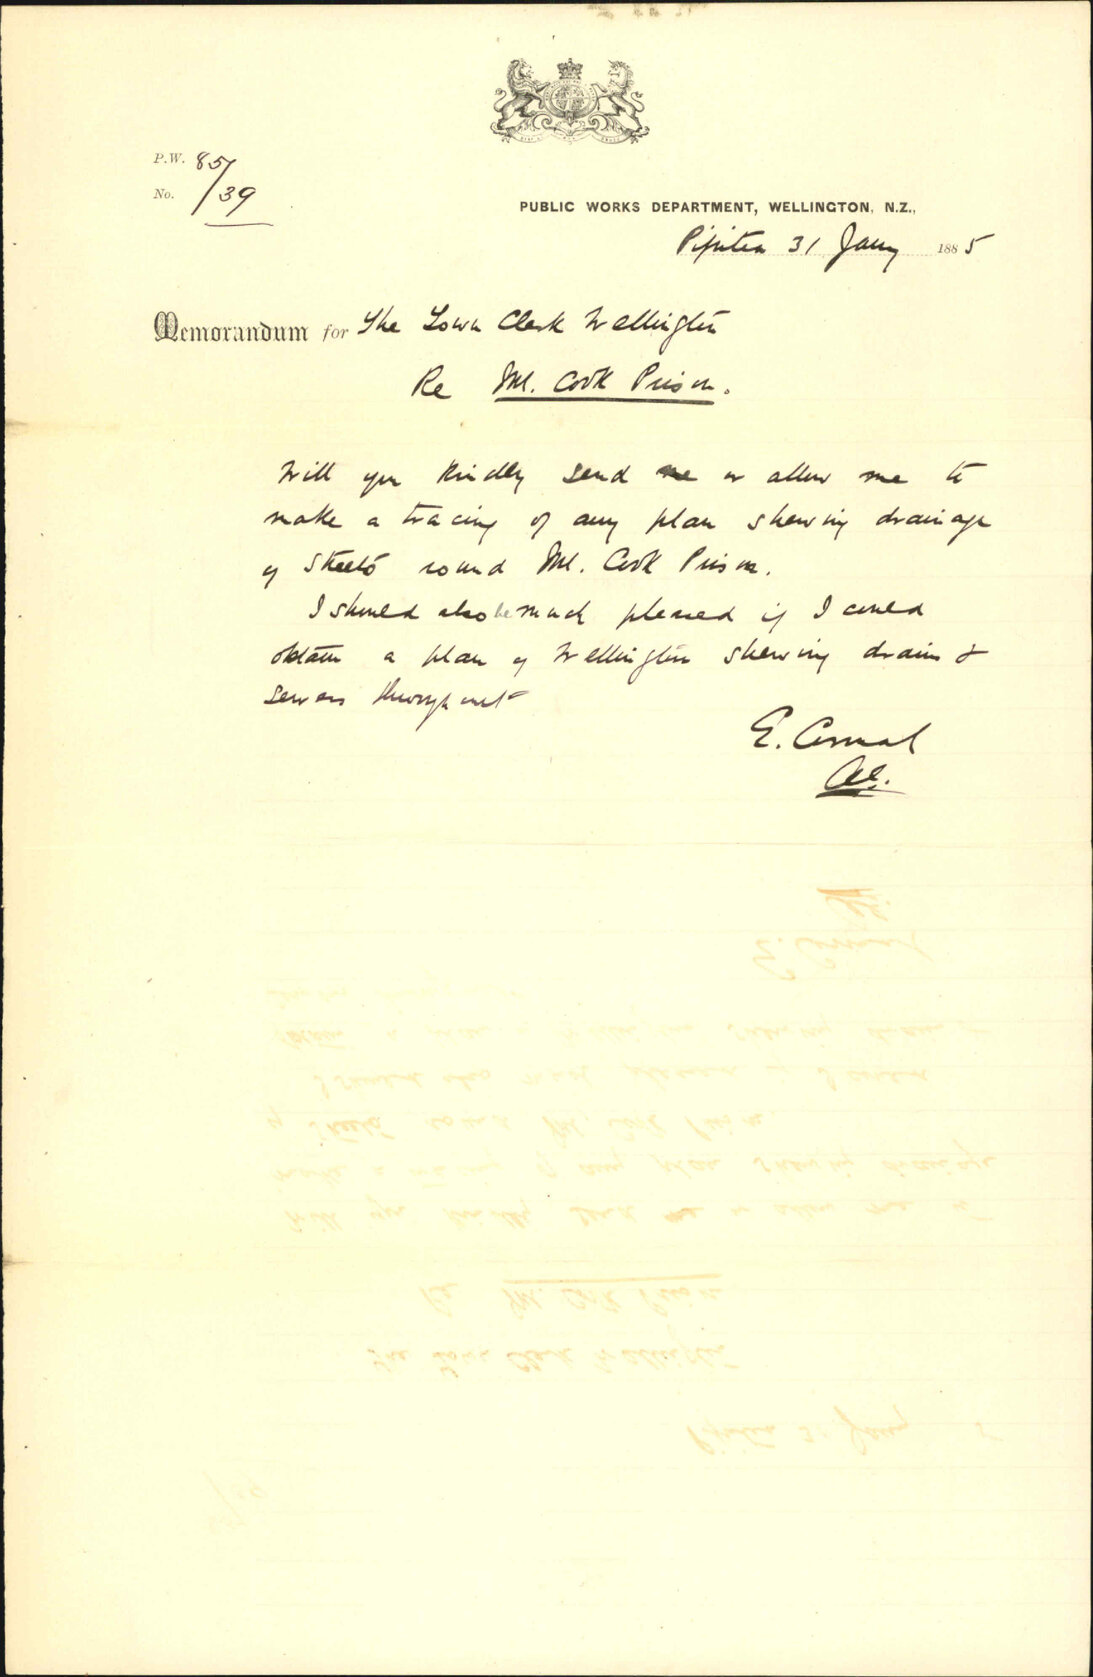 P.W. 85/
No. /39
PUBLIC WORKS DEPARTMENT, WELLINGTON, N.Z.,
Pipitea 31 Jany 1885
Memorandum for The Town Clerk Wellington
Re Mt. Cook Prison.
Will you kindly send me or allow me to
make a tracing of any plan shewing drainage
of Streets round Mt. Cook Prison.
I should also be much pleased if I could
obtain a plan of Wellington shewing drains &
sewers throughout
E.